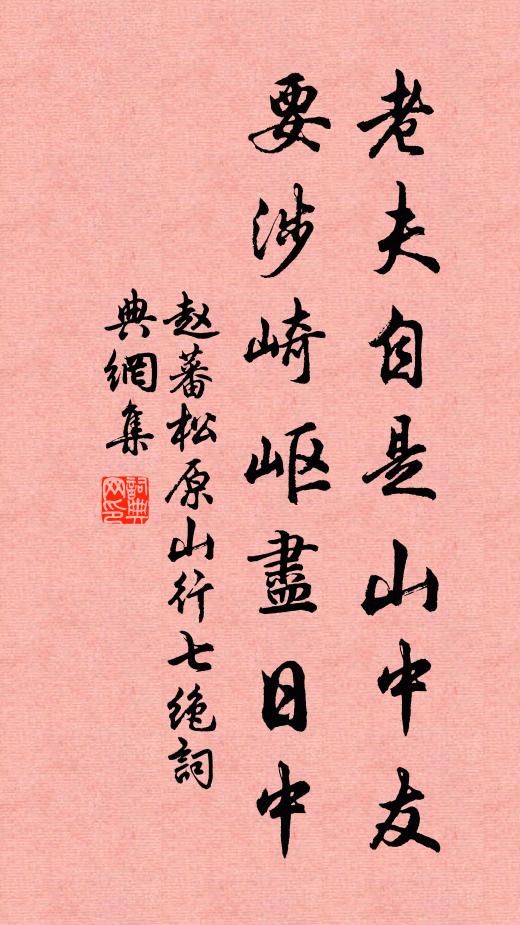 老夫自是山中友
要涉崎岖盡日中
赵蕃松原山行七绝詞
典網集
詞典
网印